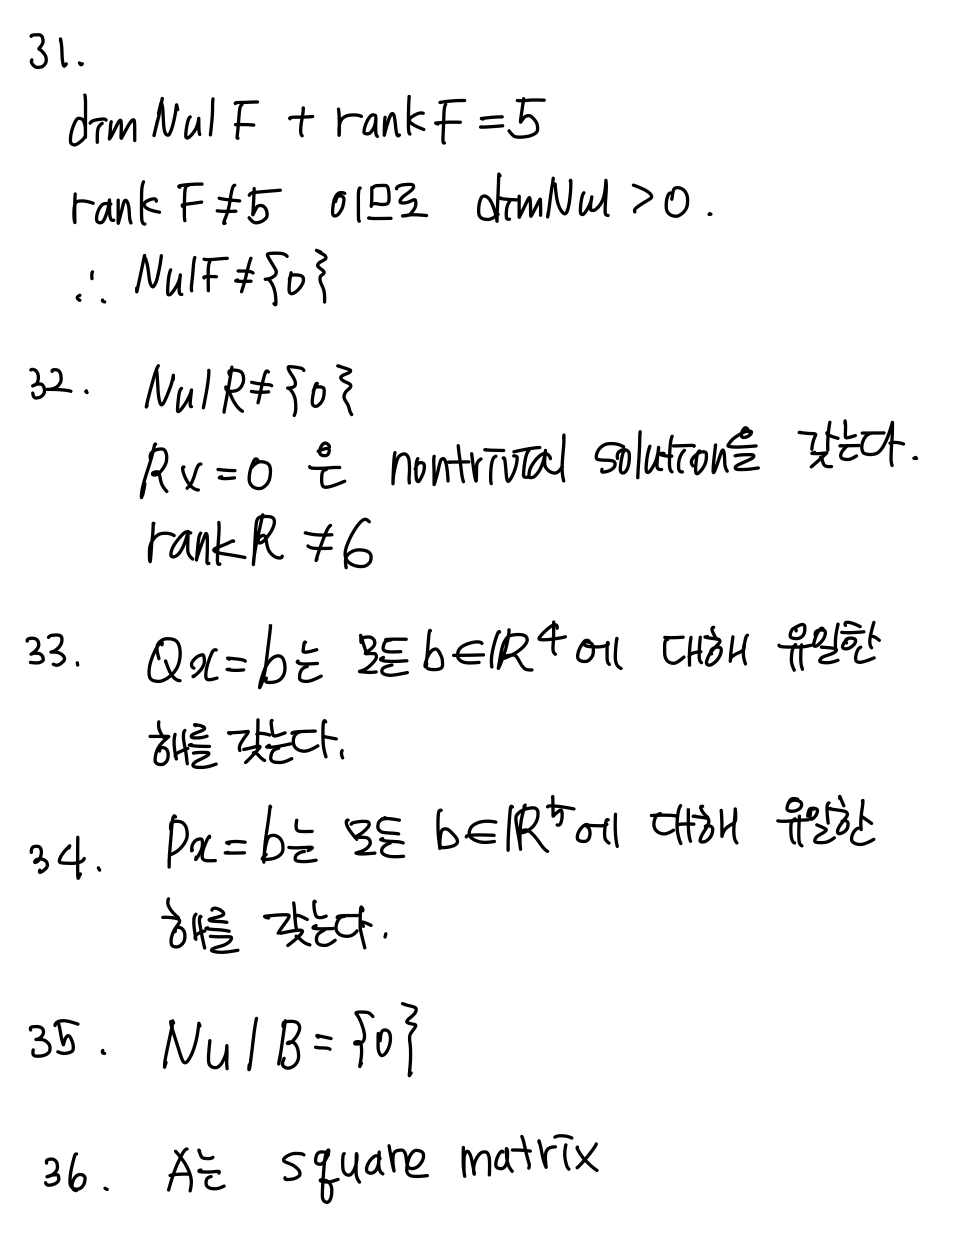 31.
dim Nul F + rank F = 5
rank F ≠ 5 이므로 dim Nul > 0.
∴ Nul F ≠ {0}
32. Nul R ≠ {0}
Rx = 0 은 nontrivial solution을 갖는다.
rank R ≠ 6
33. Qx = b는 모든 b∈ℝ⁴에 대해 유일한
해를 갖는다.
34. Px = b는 모든 b∈ℝ⁵에 대해 유일한
해를 갖는다.
35. Nul B = {0}
36. A는 square matrix